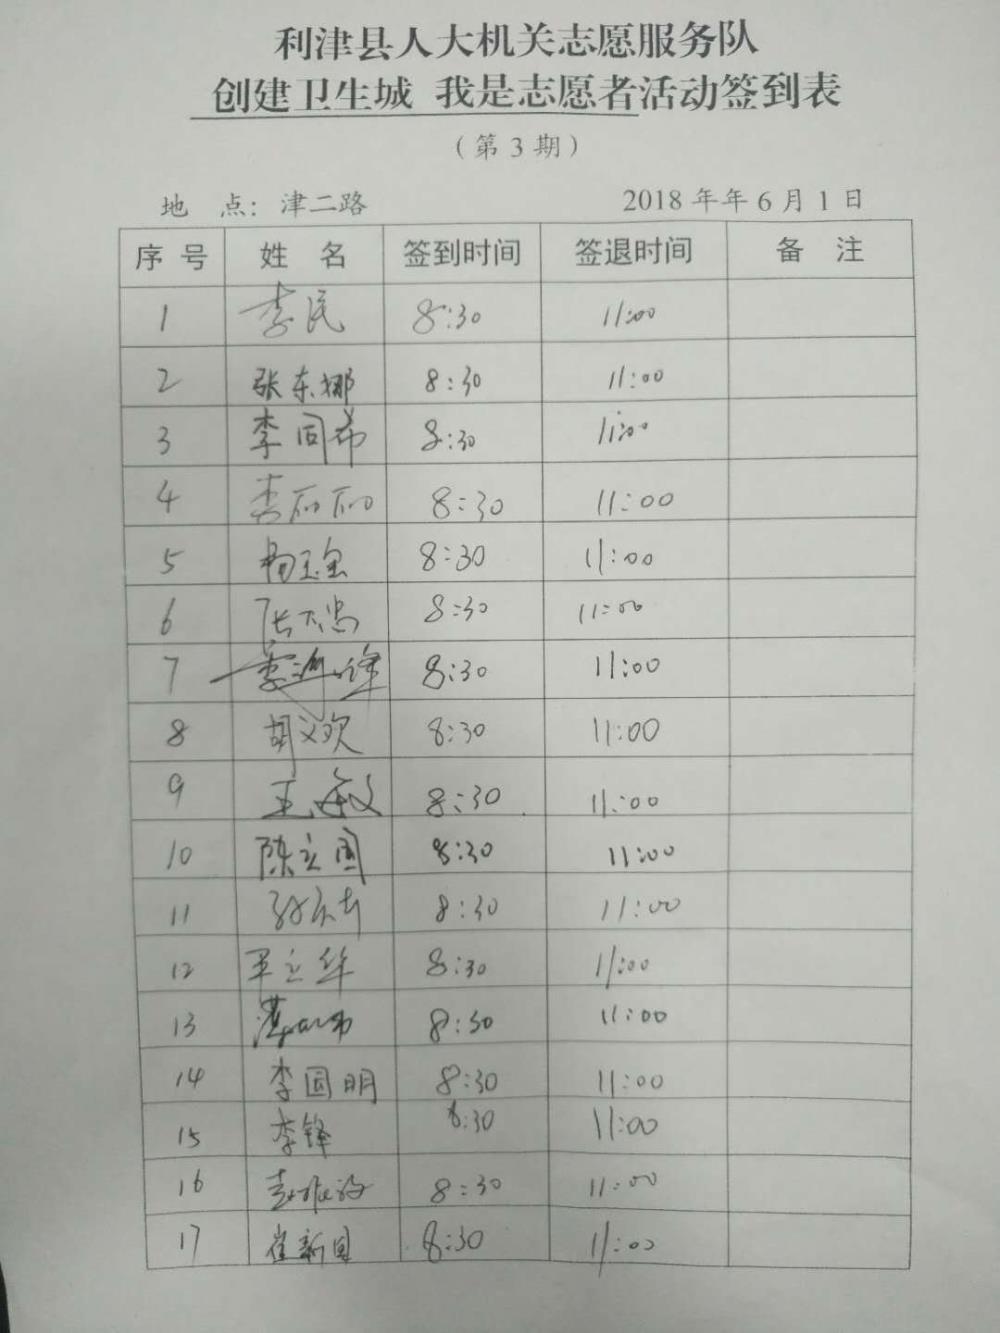 利津县人大机关志愿服务队
创建卫生城 我是志愿者活动签到表
（第3期）
地 点：津二路 2018年年6月1日
序号 姓名 签到时间 签退时间 备注
1 李民 8:30 11:00
2 张东娜 8:30 11:00
3 李同希 8:30 11:00
4 李丽丽 8:30 11:00
5 杨玉宝 8:30 11:00
6 8:30 11:00
7 8:30 11:00
8 胡义欢 8:30 11:00
9 王敏 8:30 11:00
10 陈立国 8:30 11:00
11 8:30 11:00
12 王立华 8:30 11:00
13 8:30 11:00
14 李国明 8:30 11:00
15 李锋 8:30 11:00
16 8:30 11:00
17 崔新国 8:30 11:00